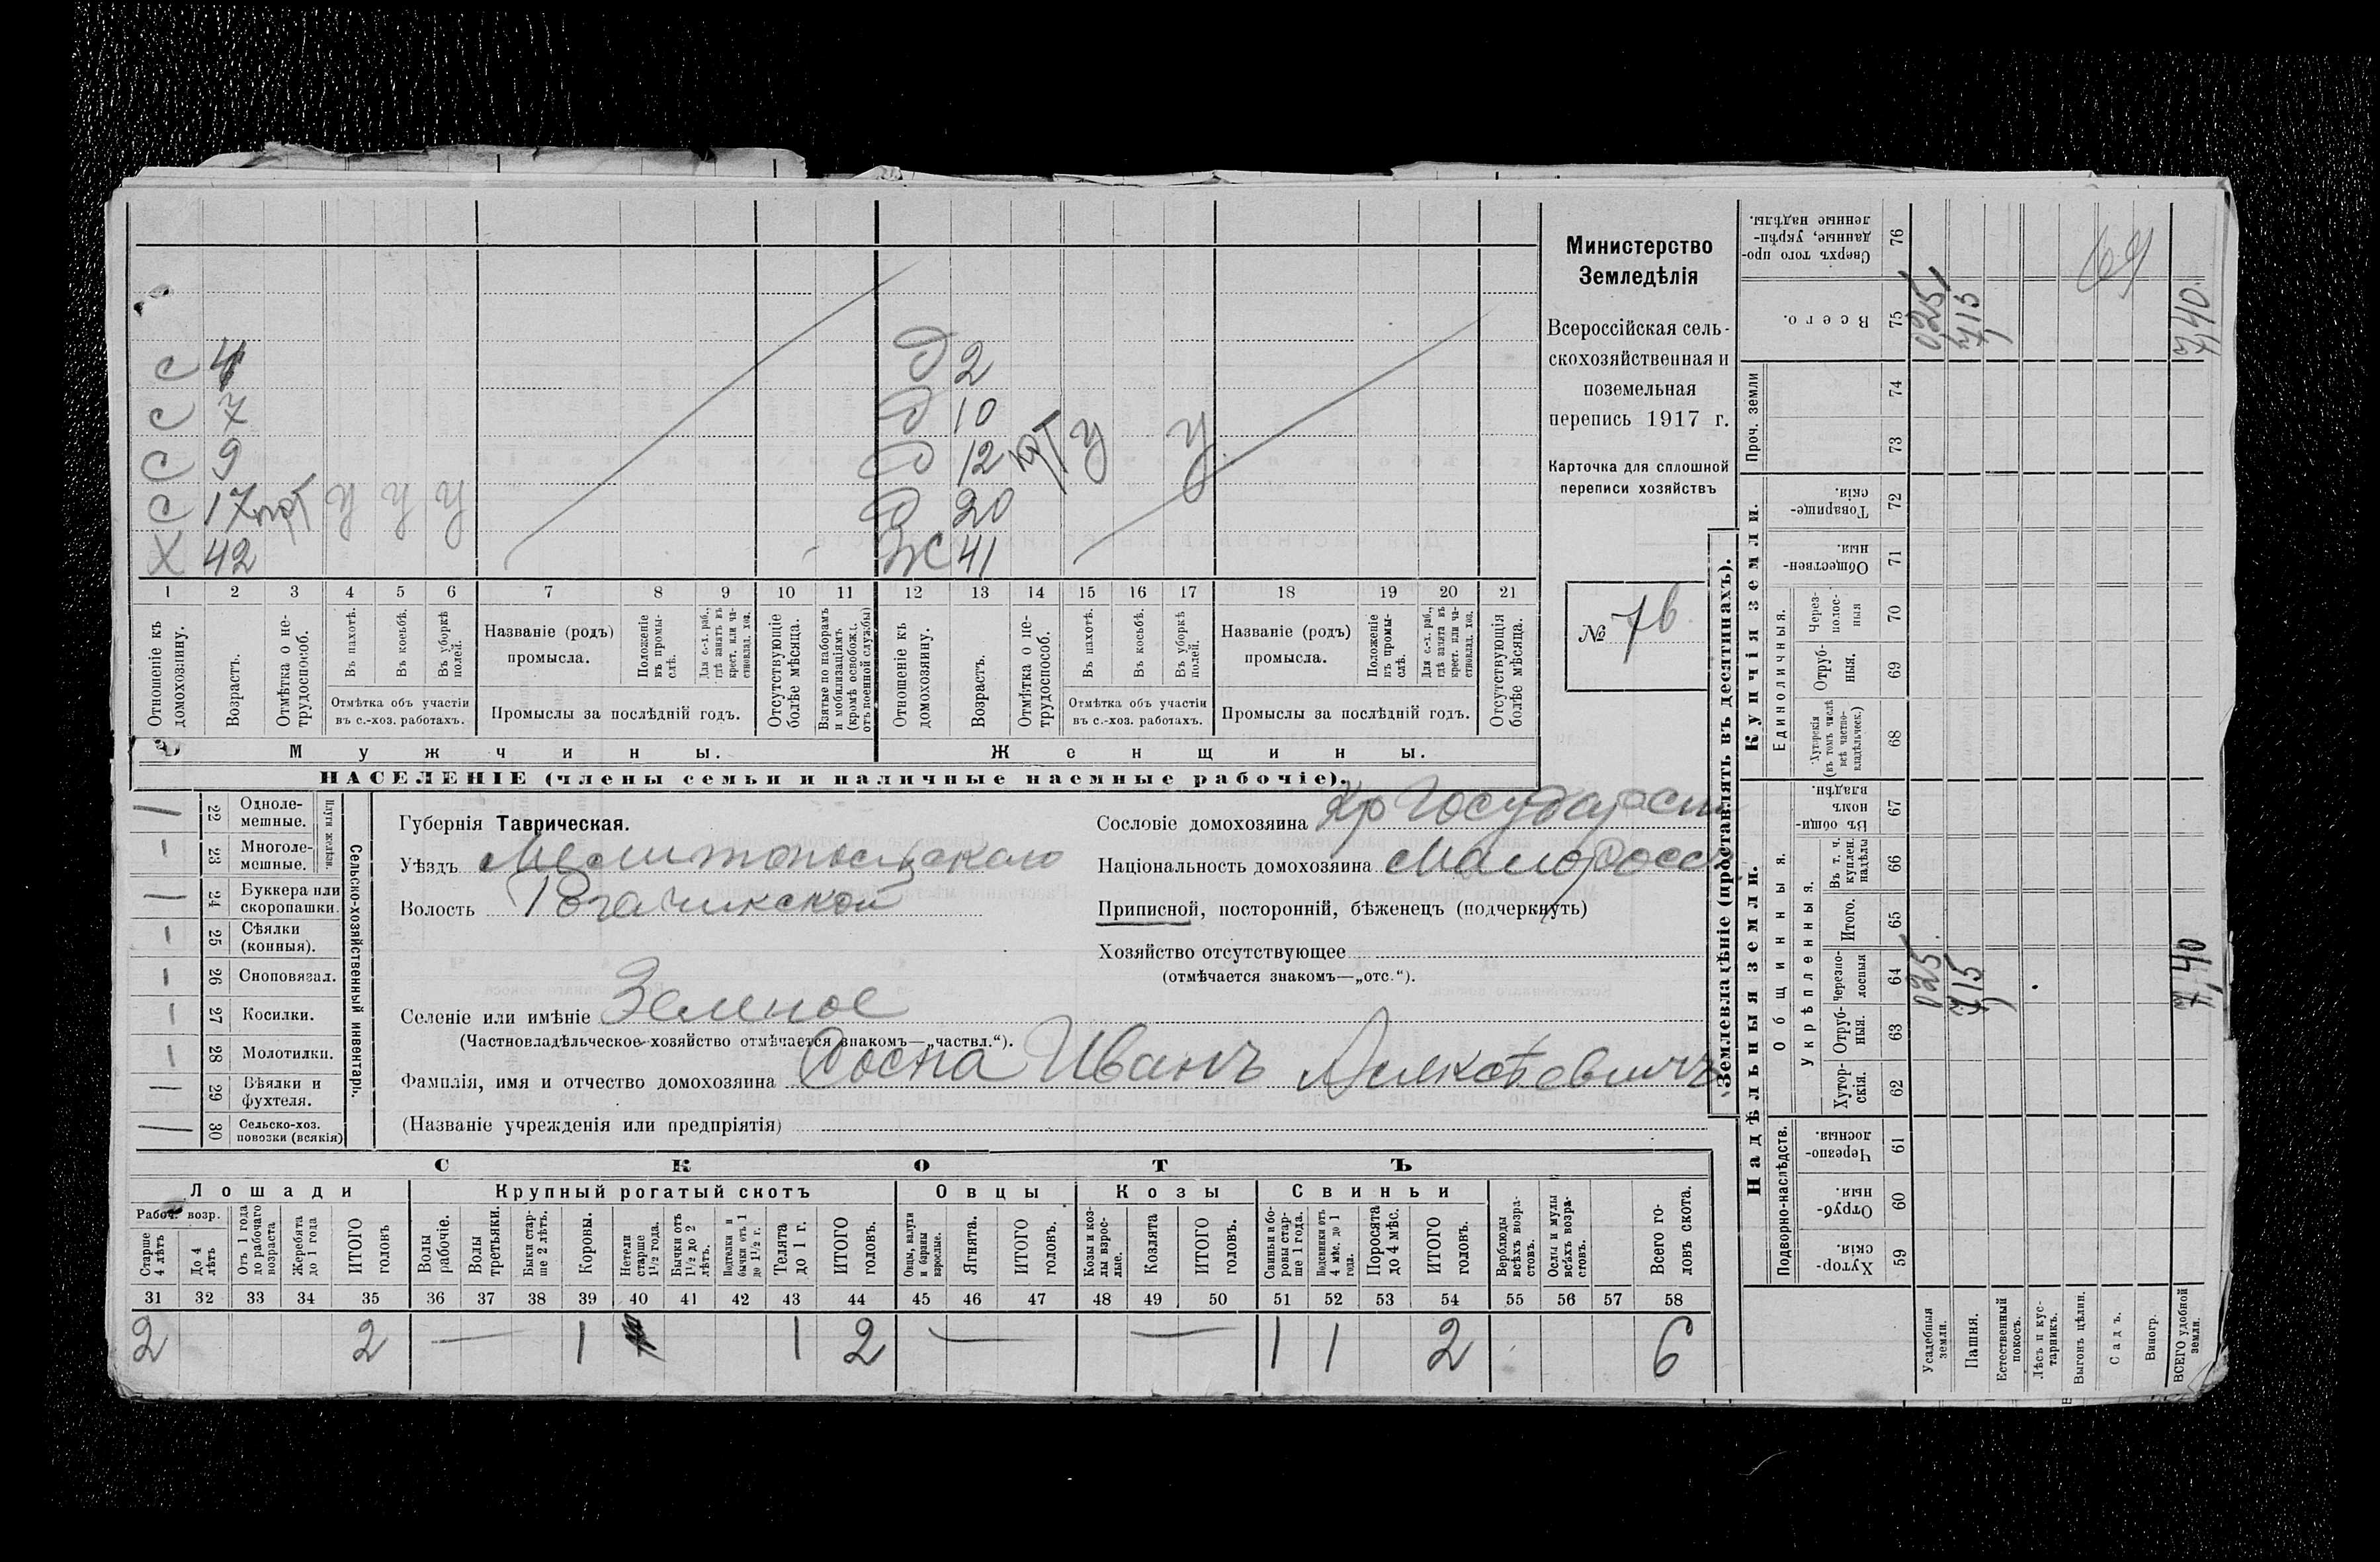 С 4 Д 2
С 7 Д 10
С 9 Д 12 нрТ У У
С 17 нрТ У У У Д 20
Х 42 Ж 41
1 2 3 4 5 6 7 8 9 10 11 12 13 14 15 16 17 18 19 20 21
Отношеніе къ домохозяину.
Возрастъ.
Отмѣтка о нетрудоспособ.
Въ пахотѣ.
Въ косьбѣ.
Въ уборкѣ полей.
Отмѣтка объ участіи въ с.-хоз. работахъ.
Названіе (родъ) промысла.
Положеніе въ промыслѣ.
Для с.-х. раб., гдѣ занятъ въ крест. или частновлад. хоз.
Промыслы за послѣдній годъ.
Отсутствующіе болѣе мѣсяца.
Взятые по наборамъ и мобилизаціямъ (кромѣ освобожд. отъ военной службы)
Отношеніе къ домохозяину.
Возрастъ.
Отмѣтка о нетрудоспособ.
Въ пахотѣ.
Въ косьбѣ.
Въ уборкѣ полей.
Отмѣтка объ участіи въ с.-хоз. работахъ.
Названіе (родъ) промысла.
Положеніе въ промыслѣ.
Для с.-х. раб., гдѣ занята въ крест. или частновлад. хоз.
Промыслы за послѣдній годъ.
Отсутствующія болѣе мѣсяца.
Мужчины. Женщины.
НАСЕЛЕНІЕ (члены семьи и наличные наемные рабочіе).
Министерство
Земледѣлія
Всероссійская сель-
скохозяйственная и
поземельная
перепись 1917 г.
Карточка для сплошной
переписи хозяйствъ
№ 76
Сельско-хозяйственный инвентарь.
Плуги желѣзн.
22 Одноле-мешные. —
23 Многоле-мешные. —
24 Буккера или скоропашки. —
25 Сѣялки (конныя). —
26 Сноповязал. —
27 Косилки. —
28 Молотилки. —
29 Вѣялки и фухтеля. —
30 Сельско-хоз. повозки (всякія) —
Губернія Таврическая.
Уѣздъ Мелитопольскаго
Волость Рогачикской
Сословіе домохозяина Кр Государств
Національность домохозяина Малоросс
Приписной, посторонній, бѣженецъ (подчеркнуть)
Хозяйство отсутствующее
(отмѣчается знакомъ—„отс.“).
Селеніе или имѣніе Зеленое
(Частновладѣльческое хозяйство отмѣчается знакомъ—„частвл.“).
Фамилія, имя и отчество домохозяина Сосна Иванъ Алексѣевичъ
(Названіе учрежденія или предпріятія)
СКОТЪ
Лошади Крупный рогатый скотъ Овцы Козы Свиньи
Рабоч. возр.
Старше 4 лѣтъ
До 4 лѣтъ
Отъ 1 года до рабочаго возраста
Жеребята до 1 года
ИТОГО головъ
Волы рабочіе.
Волы третьяки.
Быки старше 2 лѣтъ.
Коровы.
Нетели старше 1½ года.
Бычки отъ 1½ до 2 лѣтъ.
Подтелки и бычки отъ 1 до 1½ г.
Телята до 1 г.
ИТОГО головъ.
Овцы, валухи и бараны взрослые.
Ягнята.
ИТОГО головъ.
Козы и козлы взрослые.
Козлята
ИТОГО головъ.
Свиньи и боровы старше 1 года.
Подсвинки отъ 4 мѣс. до 1 года.
Поросята до 4 мѣс.
ИТОГО головъ.
Верблюды всѣхъ возрастовъ.
Ослы и мулы всѣхъ возрастовъ.
Всего головъ скота.
31 32 33 34 35 36 37 38 39 40 41 42 43 44 45 46 47 48 49 50 51 52 53 54 55 56 57 58
2 2 — 1 1 2 — — 1 1 2 6
Землевладѣніе (проставлять въ десятинахъ).
Надѣльныя земли. Купчія земли.
Подворно-наслѣдств. Общинныя. Укрѣпленныя. Единоличныя. Проч. земли
59 Хуторскія.
60 Отрубныя.
61 Черезполосныя.
62 Хуторскія.
63 Отрубныя.
64 черезполосныя
65 Итого.
66 Въ т. ч. куплен. надѣлы
67 Въ общинномъ владѣн.
68 Хуторскія (въ томъ числѣ всѣ частновладѣльческ.)
69 Отрубныя.
70 Черезполосныя
71 Общественныя.
72 Товарищескія.
73
74
75 Всего.
76 Сверхъ того проданные, укрѣпленные надѣлы.
Усадебныя земли. 025 025
Пашня. 7,15 7,15
Естественный покосъ.
Лѣсъ и кустарникъ.
Выгонъ цѣлин.
Садъ.
Виногр.
ВСЕГО удобной земли. 7,40 7,40
69